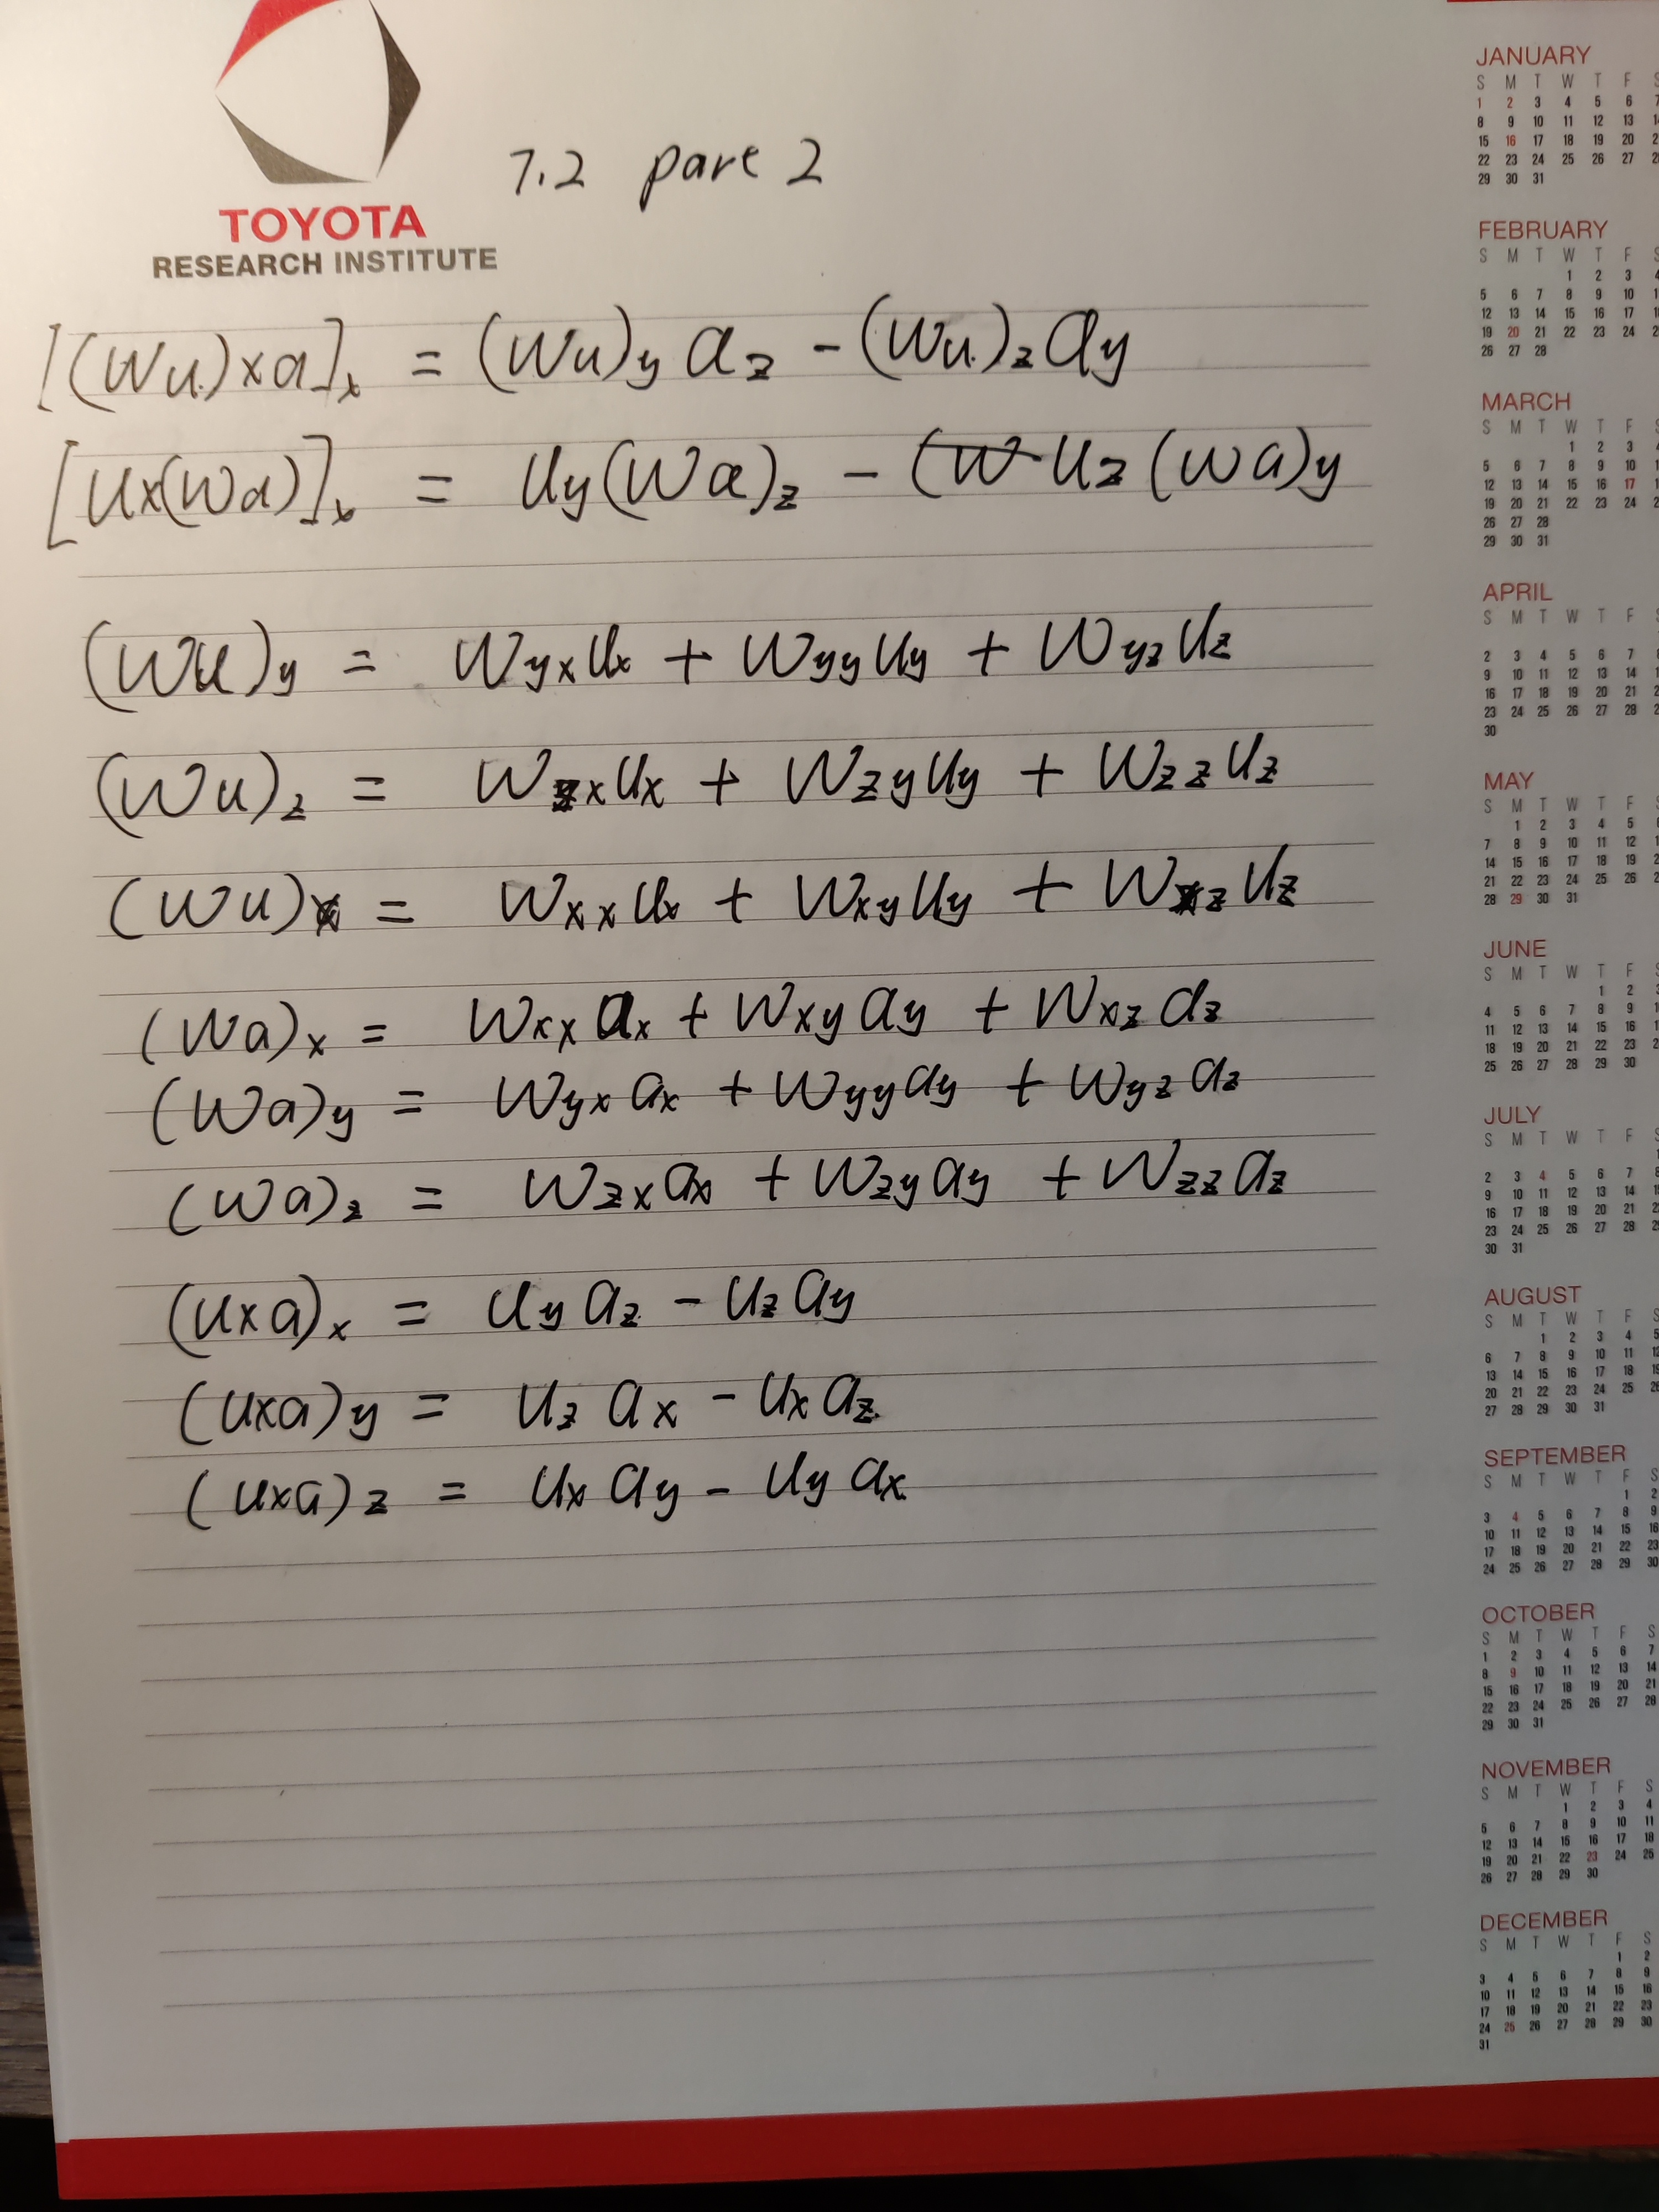 TOYOTA
RESEARCH INSTITUTE
7.2 part 2
[(Wu)×a]x = (Wu)y az - (Wu)z ay
[u×(Wa)]x = uy(Wa)z - uz(Wa)y
(Wu)y = Wyx ux + Wyy uy + Wyz uz
(Wu)z = Wzx ux + Wzy uy + Wzz uz
(Wu)x = Wxx ux + Wxy uy + Wxz uz
(Wa)x = Wxx ax + Wxy ay + Wxz az
(Wa)y = Wyx ax + Wyy ay + Wyz az
(Wa)z = Wzx ax + Wzy ay + Wzz az
(u×a)x = uy az - uz ay
(u×a)y = uz ax - ux az
(u×a)z = ux ay - uy ax
JANUARY
S M T W T F S
1 2 3 4 5 6 7
8 9 10 11 12 13
15 16 17 18 19 20
22 23 24 25 26 27
29 30 31
FEBRUARY
S M T W T F S
1 2 3 4
5 6 7 8 9 10
12 13 14 15 16 17
19 20 21 22 23 24
26 27 28
MARCH
S M T W T F S
1 2 3 4
5 6 7 8 9 10
12 13 14 15 16 17
19 20 21 22 23 24
26 27 28
29 30 31
APRIL
S M T W T F S
2 3 4 5 6 7
9 10 11 12 13 14
16 17 18 19 20 21
23 24 25 26 27 28
30
MAY
S M T W T F S
1 2 3 4 5
7 8 9 10 11 12
14 15 16 17 18 19
21 22 23 24 25 26
28 29 30 31
JUNE
S M T W T F S
1 2
4 5 6 7 8 9
11 12 13 14 15 16
18 19 20 21 22 23
25 26 27 28 29 30
JULY
S M T W T F S
2 3 4 5 6 7
9 10 11 12 13 14
16 17 18 19 20 21
23 24 25 26 27 28
30 31
AUGUST
S M T W T F S
1 2 3 4
6 7 8 9 10 11
13 14 15 16 17 18
20 21 22 23 24 25
27 28 29 30 31
SEPTEMBER
S M T W T F S
1 2
3 4 5 6 7 8 9
10 11 12 13 14 15 16
17 18 19 20 21 22 23
24 25 26 27 28 29 30
OCTOBER
S M T W T F S
1 2 3 4 5 6 7
8 9 10 11 12 13 14
15 16 17 18 19 20 21
22 23 24 25 26 27 28
29 30 31
NOVEMBER
S M T W T F S
1 2 3 4
5 6 7 8 9 10 11
12 13 14 15 16 17 18
19 20 21 22 23 24 25
26 27 28 29 30
DECEMBER
S M T W T F S
1 2
3 4 5 6 7 8 9
10 11 12 13 14 15 16
17 18 19 20 21 22 23
24 25 26 27 28 29 30
31